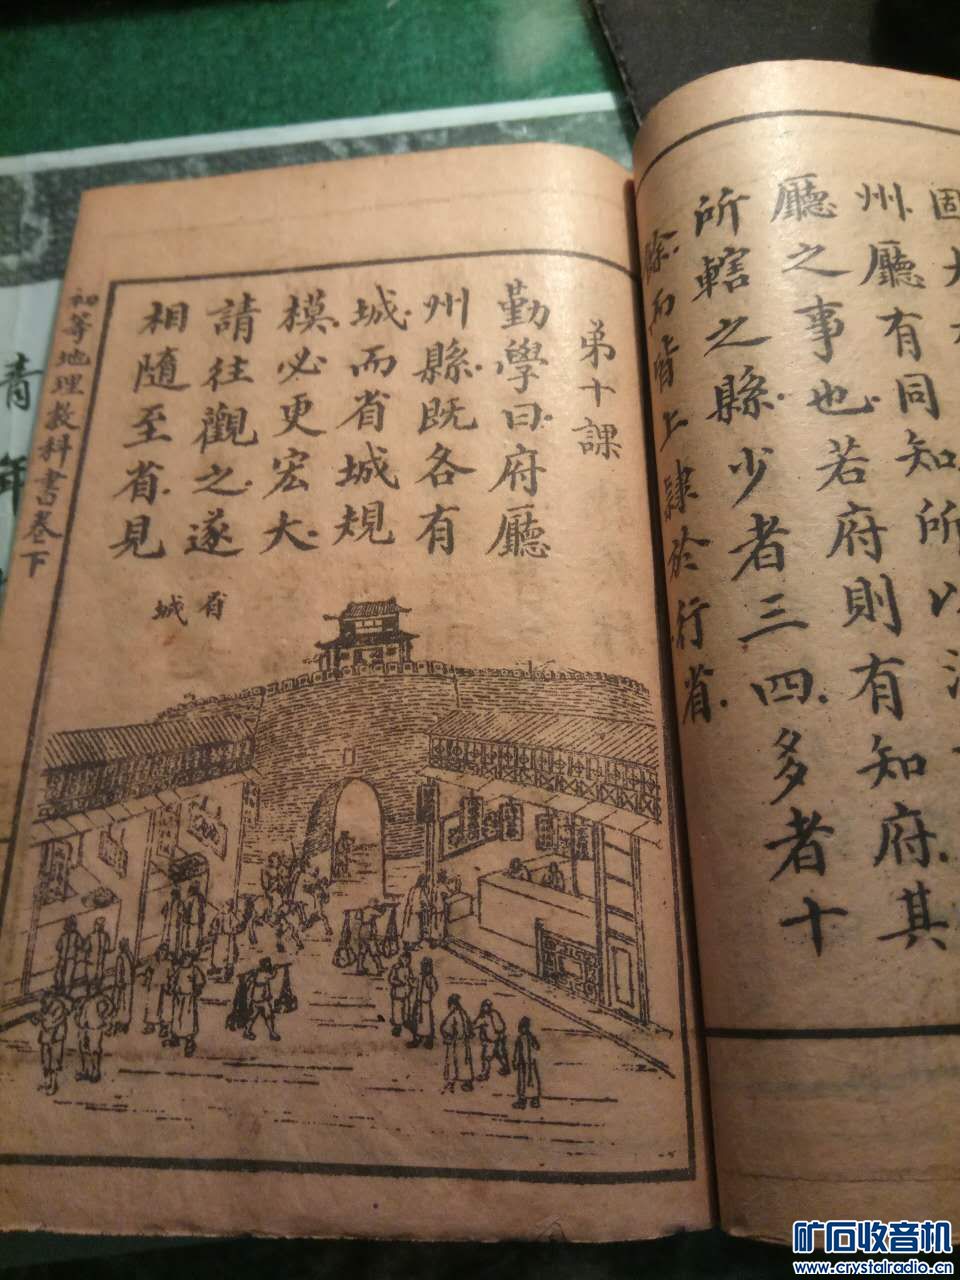 固
州廳有同知所以
廳之事也若府則有知府其
所轄之縣少者三四多者十
餘而皆上隸於行省
弟十課
勤學曰府廳
州縣既各有
城而省城規
模必更宏大
請往觀之遂
相隨至省見
省城
初等地理教科書卷下
青年
矿石收音机
www.crystalradio.cn